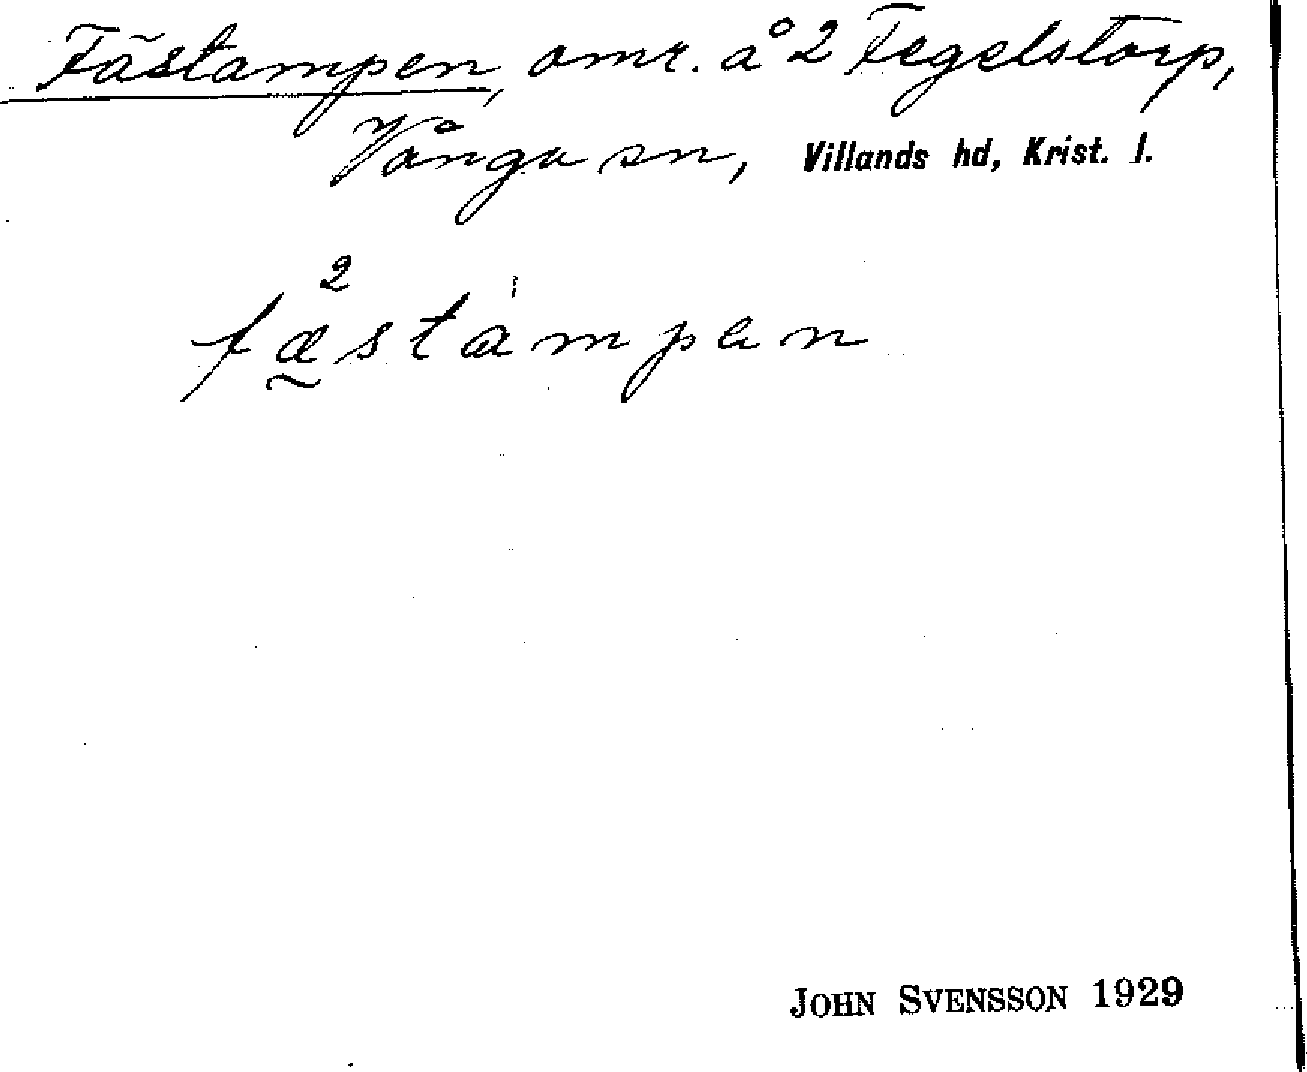 Fästampen, omr. å 2 Tegelstorp,
Vånga sn, Villands hd, Krist. l.
2
fæstàmpen
JOHN SVENSSON 1929